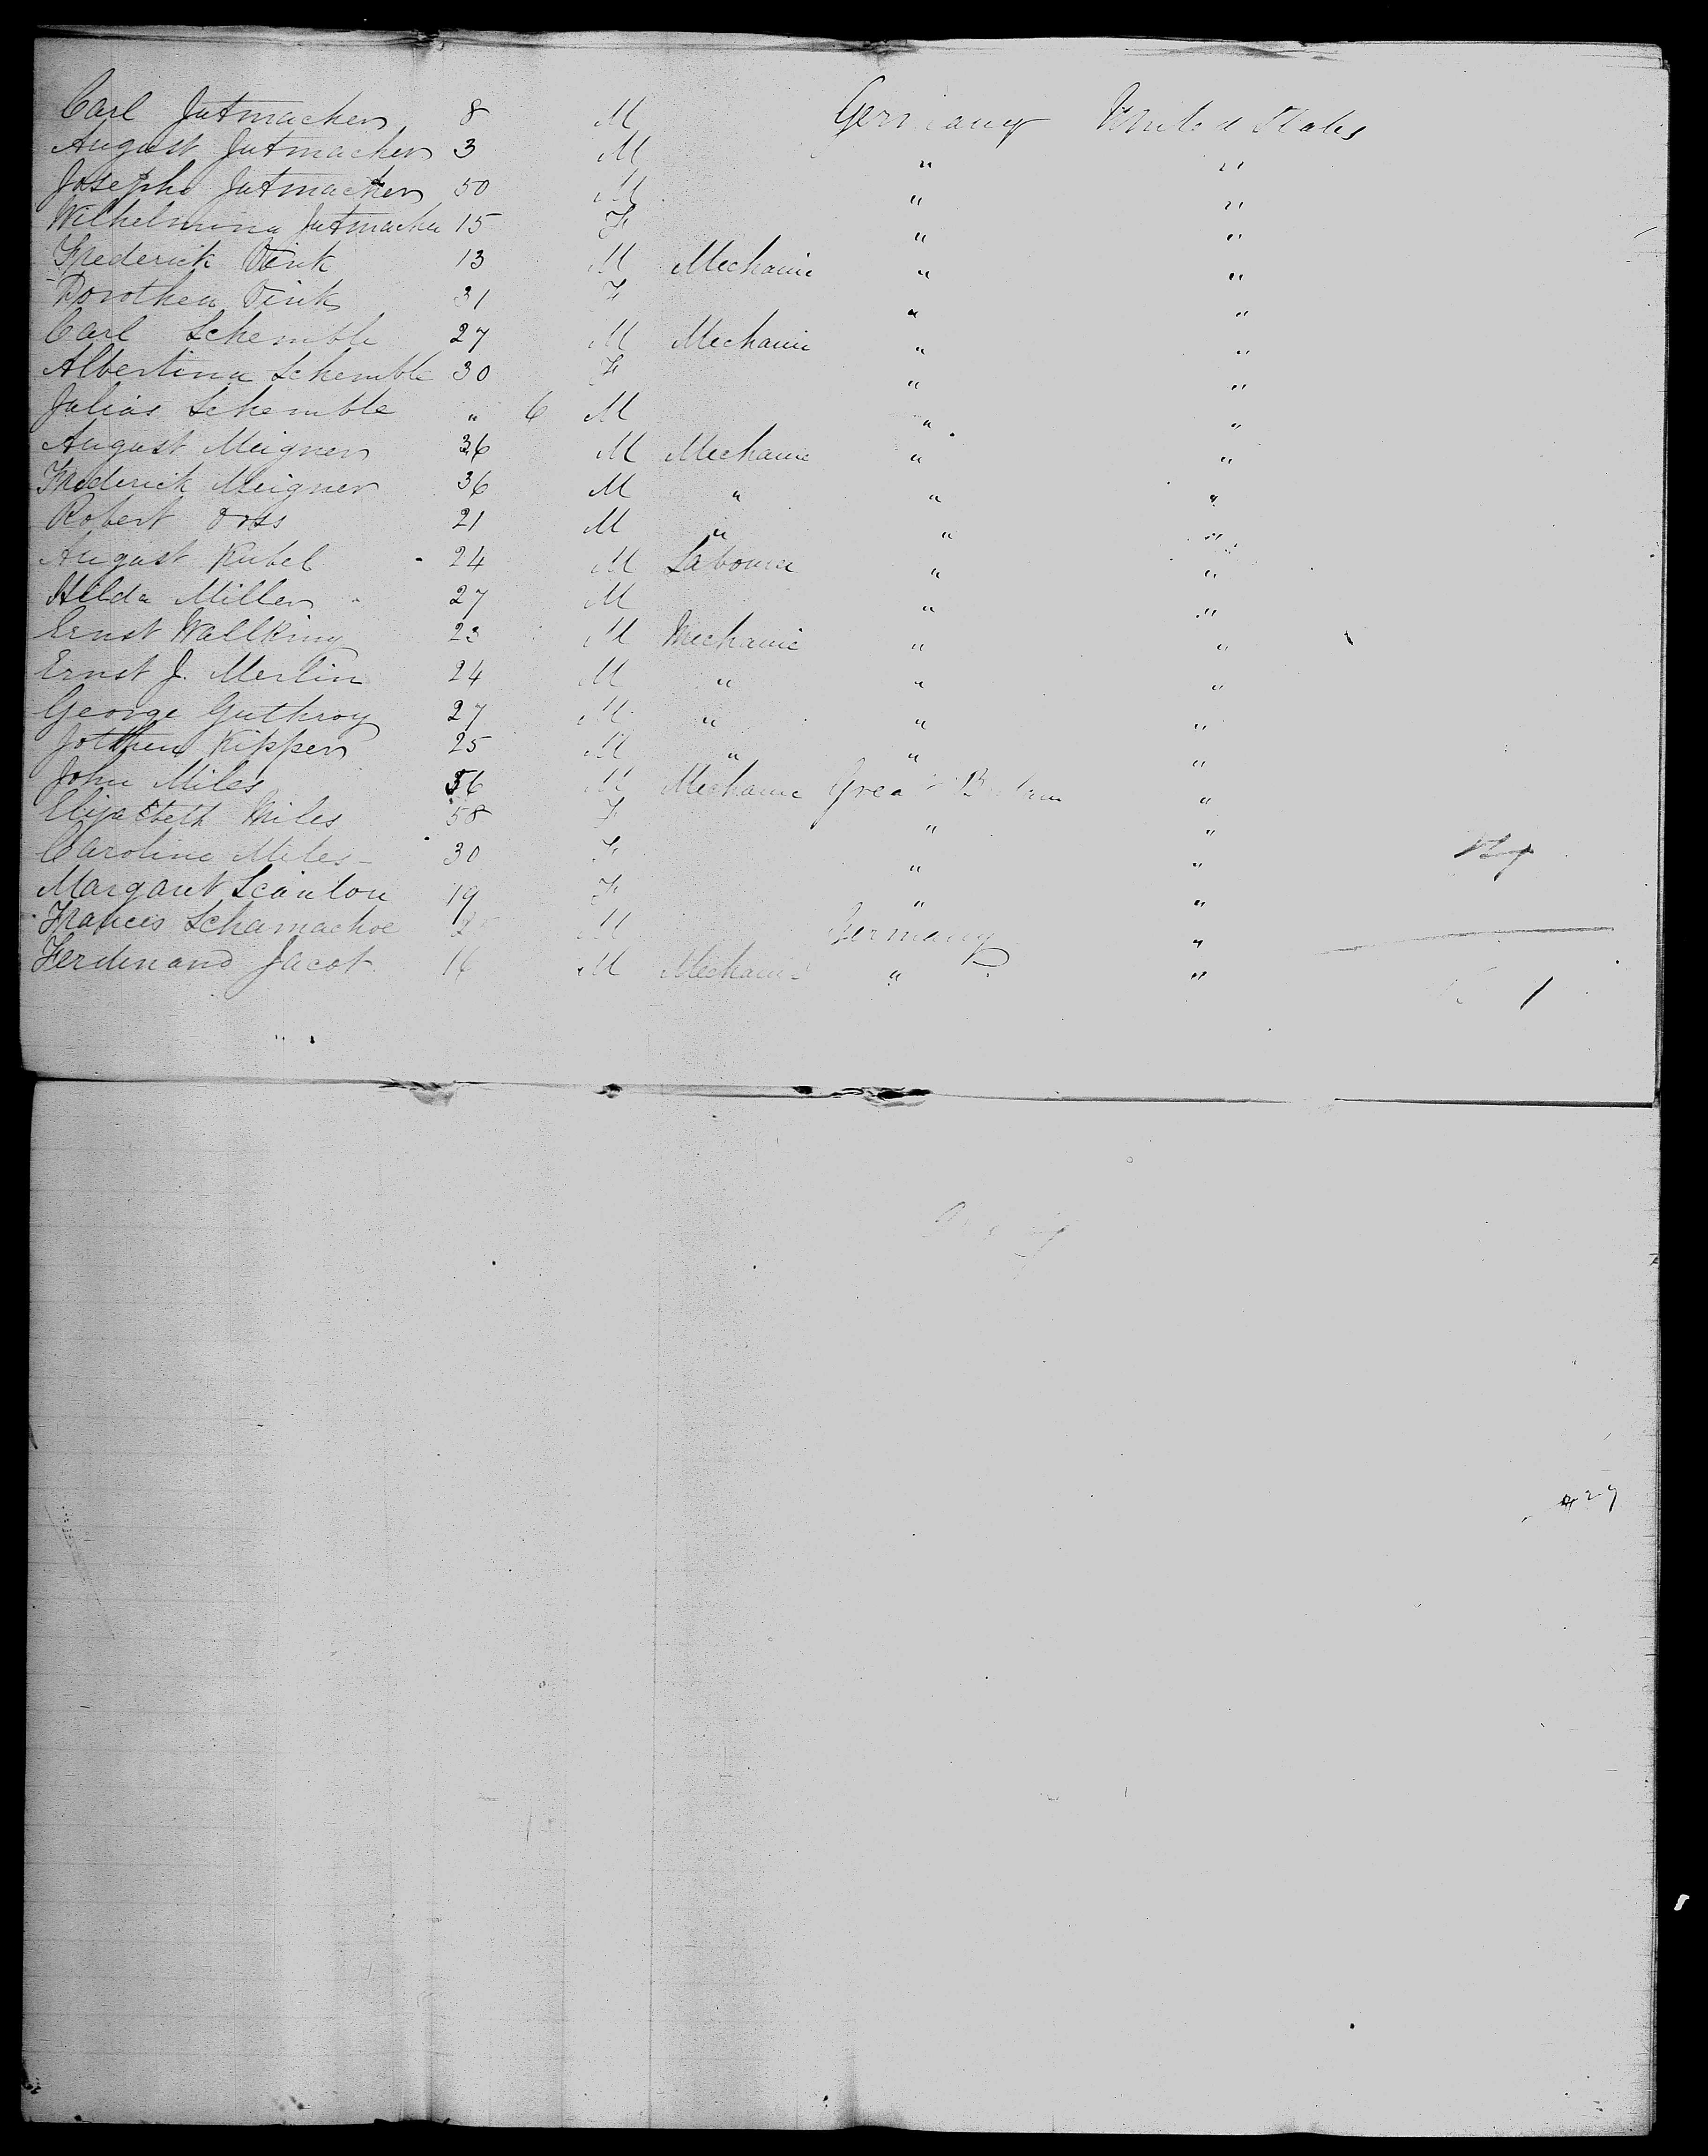 Carl Jutmacher 8 M Germany United States
August Jutmacher 3 M " "
Joseph Jutmacher 50 M " "
Wilhelmina Jutmacher 15 F " "
Frederick Vink 13 M Mechanic " "
Dorothea Vink 31 F " "
Carl Schemble 27 M Mechanic " "
Albertina Schemble 30 F " "
Julias Schemble " 6 M " "
August Meigner 36 M Mechanic " "
Frederick Meigner 36 M " " "
Robert Voss 21 M " " "
August Kubel 24 M Labourer " "
Hilda Miller 27 M " "
Ernst Wallking 23 M Mechanic " "
Ernst J. Merlin 24 M " " "
George Guthroy 27 M " " "
Kipper 25 M " " "
John Miles 56 M Mechanic Great Britain "
Elizabeth Miles 58 F " "
Caroline Miles 30 F " "
Margaret Scanlon 19 F " "
Frances Schamachoe M Germany "
Ferdinand Jacot 16 M Mechanic " "